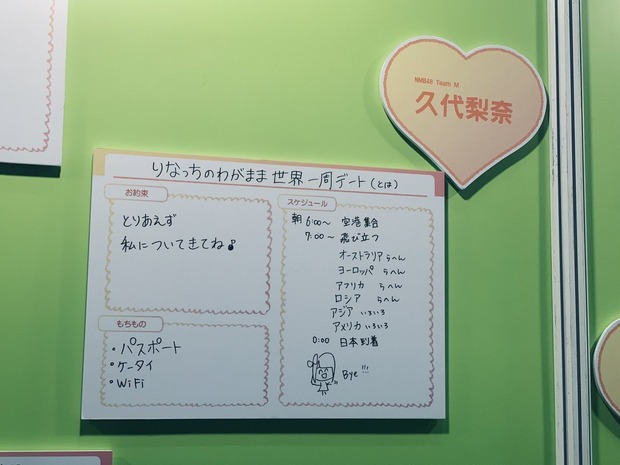 NMB48 Team M
久代梨奈
りなっちのわがまま世界一周デート(とは)
お約束
とりあえず
私についてきてね♪
もちもの
・パスポート
・ケータイ
・WiFi
スケジュール
朝 6:00～ 空港集合
7:00～ 飛び立つ
オーストラリアらへん
ヨーロッパ らへん
アフリカ らへん
ロシア らへん
アジア いろいろ
アメリカ いろいろ
0:00 日本到着
Bye!!!